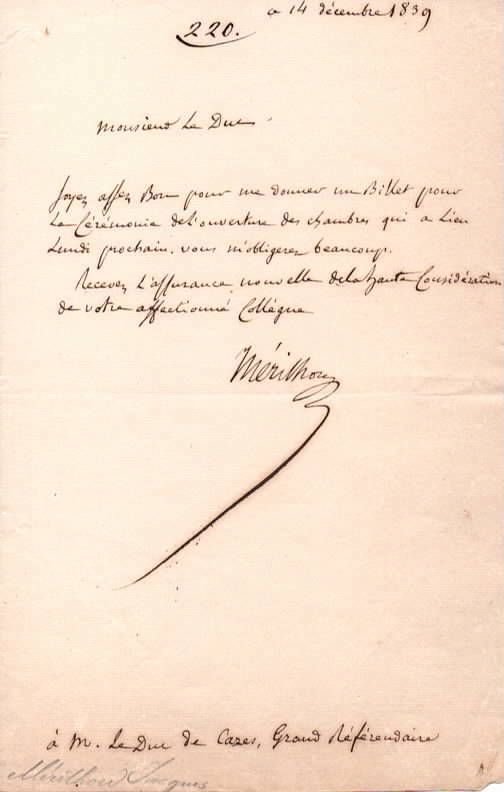 a 14 décembre 1839
220.
Monsieur Le Duc.
Soyez assez Bon pour me donner un Billet pour
La Cérémonie de L'ouverture des chambres qui a Lieu
Lundi prochain. vous m'obligerez beaucoup.
Recevez L'assurance nouvelle de la haute Considération
de votre affectionné Collègue
Mérilhou
à M. Le Duc de Cazes, Grand Référendaire
Mérilhou Jacques